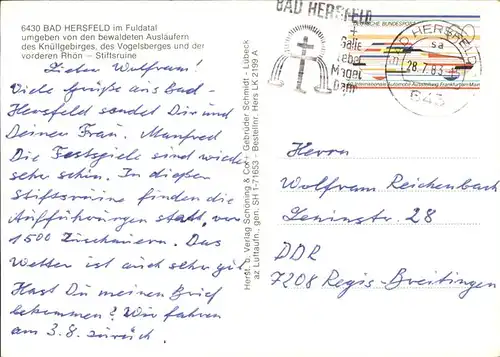 6430 BAD HERSFELD im Fuldatal
umgeben von den bewaldeten Ausläufern
des Knüllgebirges, des Vogelsberges und der
vorderen Rhön – Stiftsruine
Lieber Wolfram!
Viele Grüße aus Bad-
Hersfeld sendet Dir und
Deiner Frau. Manfred
Die Festspiele sind wieder
sehr schön. In dieser
Stiftsruine finden die
Aufführungen statt, vor
1500 Zuschauern. Das
Wetter ist auch sehr gut
Hast Du meinen Brief
bekommen? Wir fahren
am 3.8. zurück.
Herst. u. Verlag Schöning & Co + Gebrüder Schmidt - Lübeck
az Luftaufn., gen. SH 1-71653 - Bestellnr. Hers LK 2199 A
BAD HERSFELD
Galle
Leber
Magen
Darm
DEUTSCHE BUNDESPOST
BAD HERSFELD
sa
28.7.83
643
Internationale Automobil-Ausstellung Frankfurt am Main
Herrn
Wolfram Reichenbach
Leninstr. 28
DDR
7208 Regis-Breitingen